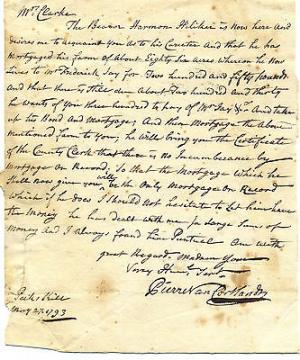 Mrs. Clarke
The Bearer Harmon Hiliker is Now here and
desires me to acquaint you as to his Carecter And that he has
Mortgaged his farm of about Eighty Six acres whereon he Now
Lives to Mr. Frederick Jay for Two hundred and fifty Pounds
And that there is Still due about Two hundred and thirty
he wants of you three hundred to pay of Mr. Jay &c. And take
up his Bond and Mortgage, And then Mortgage the above
mentioned farm to you, he will bring you the Certificate
of the County Clerk that there is No Incumberance by
Mortgage On Record. So that the Mortgage Which he
Shall Now give you, will be the Only Mortgage On Record
Which if he does I Should Not hesitate to Let him have
the Money he has dealt with me for Large Sums of
Money And I always found him Puntiel Am with
great Regard Madam Your
Very Humb. Servt.
Pierre Van Cortlandt
Peeks Kill
May 27. 1793